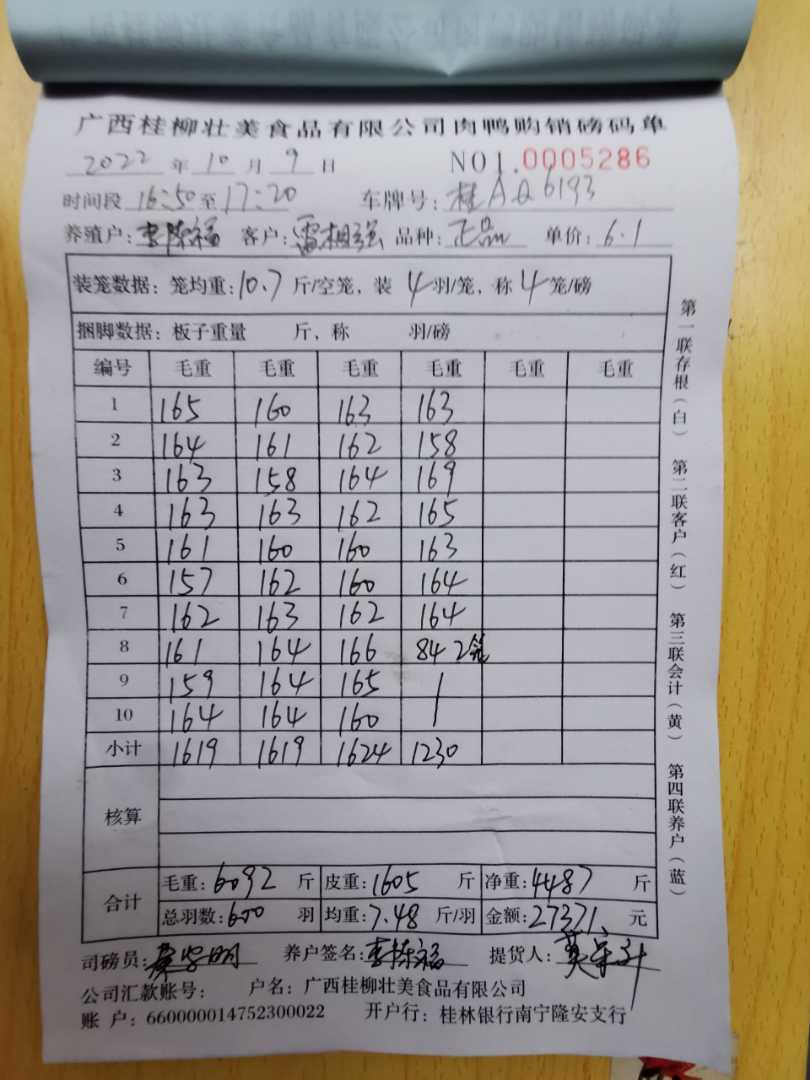 广西桂柳壮美食品有限公司肉鸭购销磅码单
2022 年 10 月 9 日 NO1.0005286
时间段 16:50 至 17:20 车牌号: 桂AQ6193
养殖户: 客户: 雷相强 品种: 正品 单价: 6.1
装笼数据: 笼均重: 10.7 斤/空笼, 装 4 羽/笼, 称 4 笼/磅
捆脚数据: 板子重量 斤, 称 羽/磅
编号 毛重 毛重 毛重 毛重 毛重 毛重
1 165 160 163 163
2 164 161 162 158
3 163 158 164 169
4 163 163 162 165
5 161 160 160 163
6 157 162 160 164
7 162 163 162 164
8 161 164 166 84 2笼
9 159 164 165 /
10 164 164 160
小计 1619 1619 1624 1230
核算
合计 毛重: 6092 斤 皮重: 1605 斤 净重: 4487 斤
总羽数: 600 羽 均重: 7.48 斤/羽 金额: 27371 元
司磅员: 养户签名: 提货人:
公司汇款账号: 户名: 广西桂柳壮美食品有限公司
账 户: 660000014752300022 开户行: 桂林银行南宁隆安支行
第一联存根(白) 第二联客户(红) 第三联会计(黄) 第四联养户(蓝)